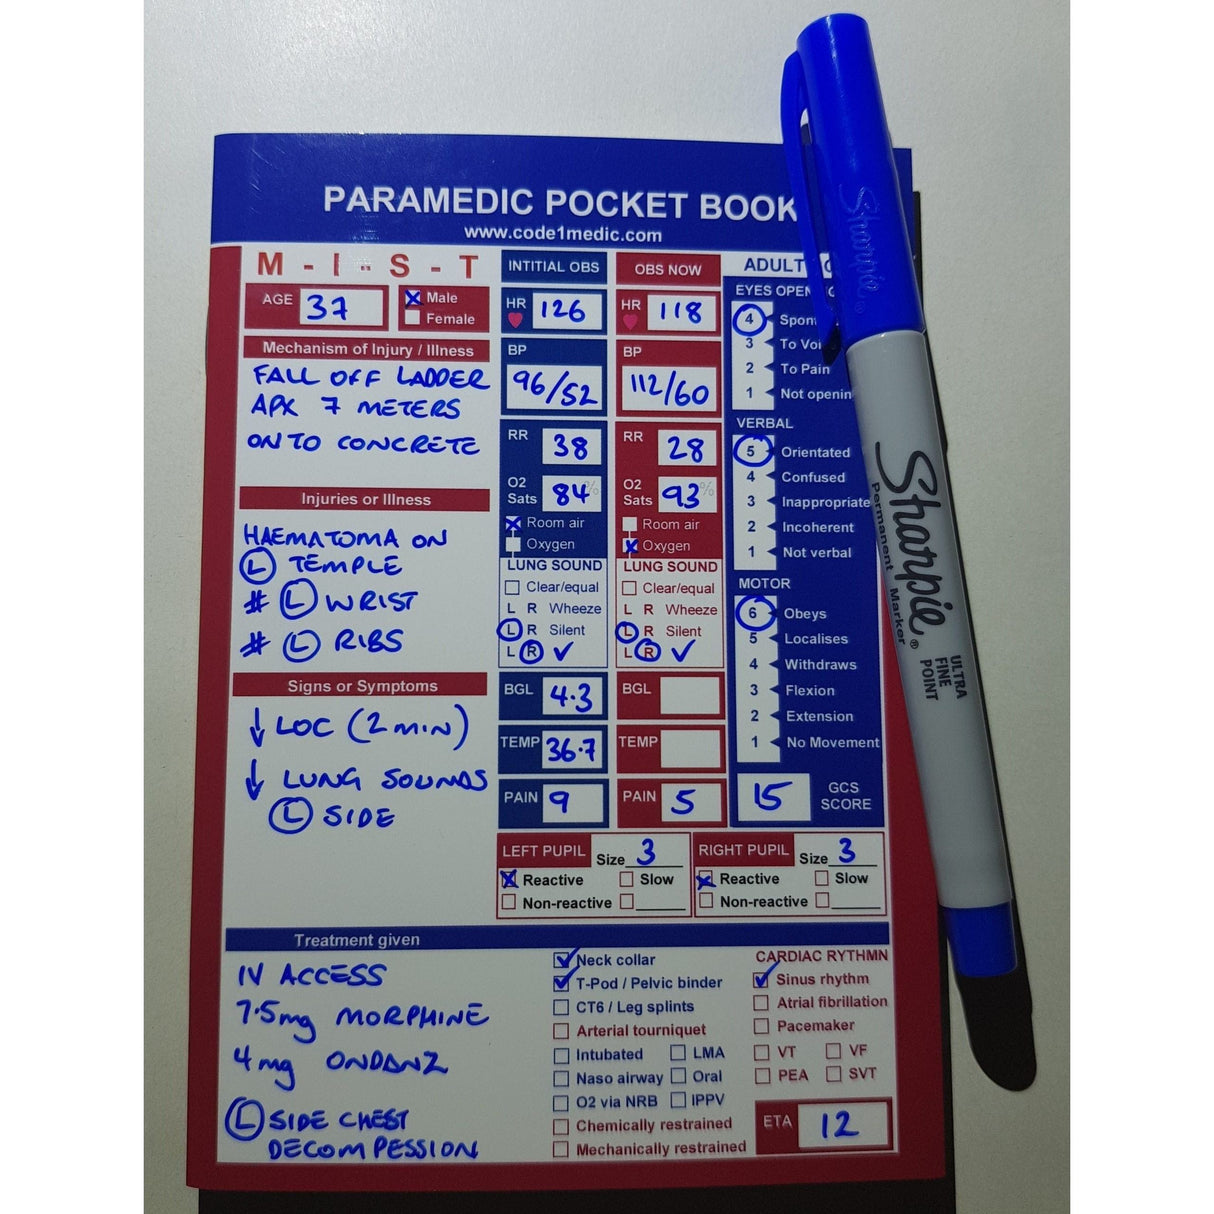 PARAMEDIC POCKET BOOK
www.code1medic.com
M - I - S - T
AGE 37
Male
Female
Mechanism of Injury / Illness
FALL OFF LADDER
APX 7 METERS
ONTO CONCRETE
Injuries or Illness
HAEMATOMA ON
L TEMPLE
# L WRIST
# L RIBS
Signs or Symptoms
↓ LOC (2 MIN)
↓ LUNG SOUNDS
L SIDE
INTITIAL OBS
HR 126
BP
96/52
RR 38
O2 Sats 84%
Room air
Oxygen
LUNG SOUND
Clear/equal
L R Wheeze
L R Silent
L R ✓
BGL 4.3
TEMP 36.7
PAIN 9
OBS NOW
HR 118
BP
112/60
RR 28
O2 Sats 93%
Room air
Oxygen
LUNG SOUND
Clear/equal
L R Wheeze
L R Silent
L R ✓
BGL
TEMP
PAIN 5
ADULT
EYES
4
3 To
2 To Pain
1 Not
VERBAL
5 Orientated
4 Confused
3 Inappropriate
2 Incoherent
1 Not verbal
MOTOR
6 Obeys
5 Localises
4 Withdraws
3 Flexion
2 Extension
1 No Movement
15 GCS SCORE
LEFT PUPIL Size 3
Reactive Slow
Non-reactive
RIGHT PUPIL Size 3
Reactive Slow
Non-reactive
Treatment given
IV ACCESS
7.5mg MORPHINE
4mg ONDANZ
L SIDE CHEST
DECOMPESSION
Neck collar
T-Pod / Pelvic binder
CT6 / Leg splints
Arterial tourniquet
Intubated LMA
Naso airway Oral
O2 via NRB IPPV
Chemically restrained
Mechanically restrained
CARDIAC RYTHMN
Sinus rhythm
Atrial fibrillation
Pacemaker
VT VF
PEA SVT
ETA 12
Sharpie
Sharpie®
Permanent Marker
ULTRA
FINE
POINT